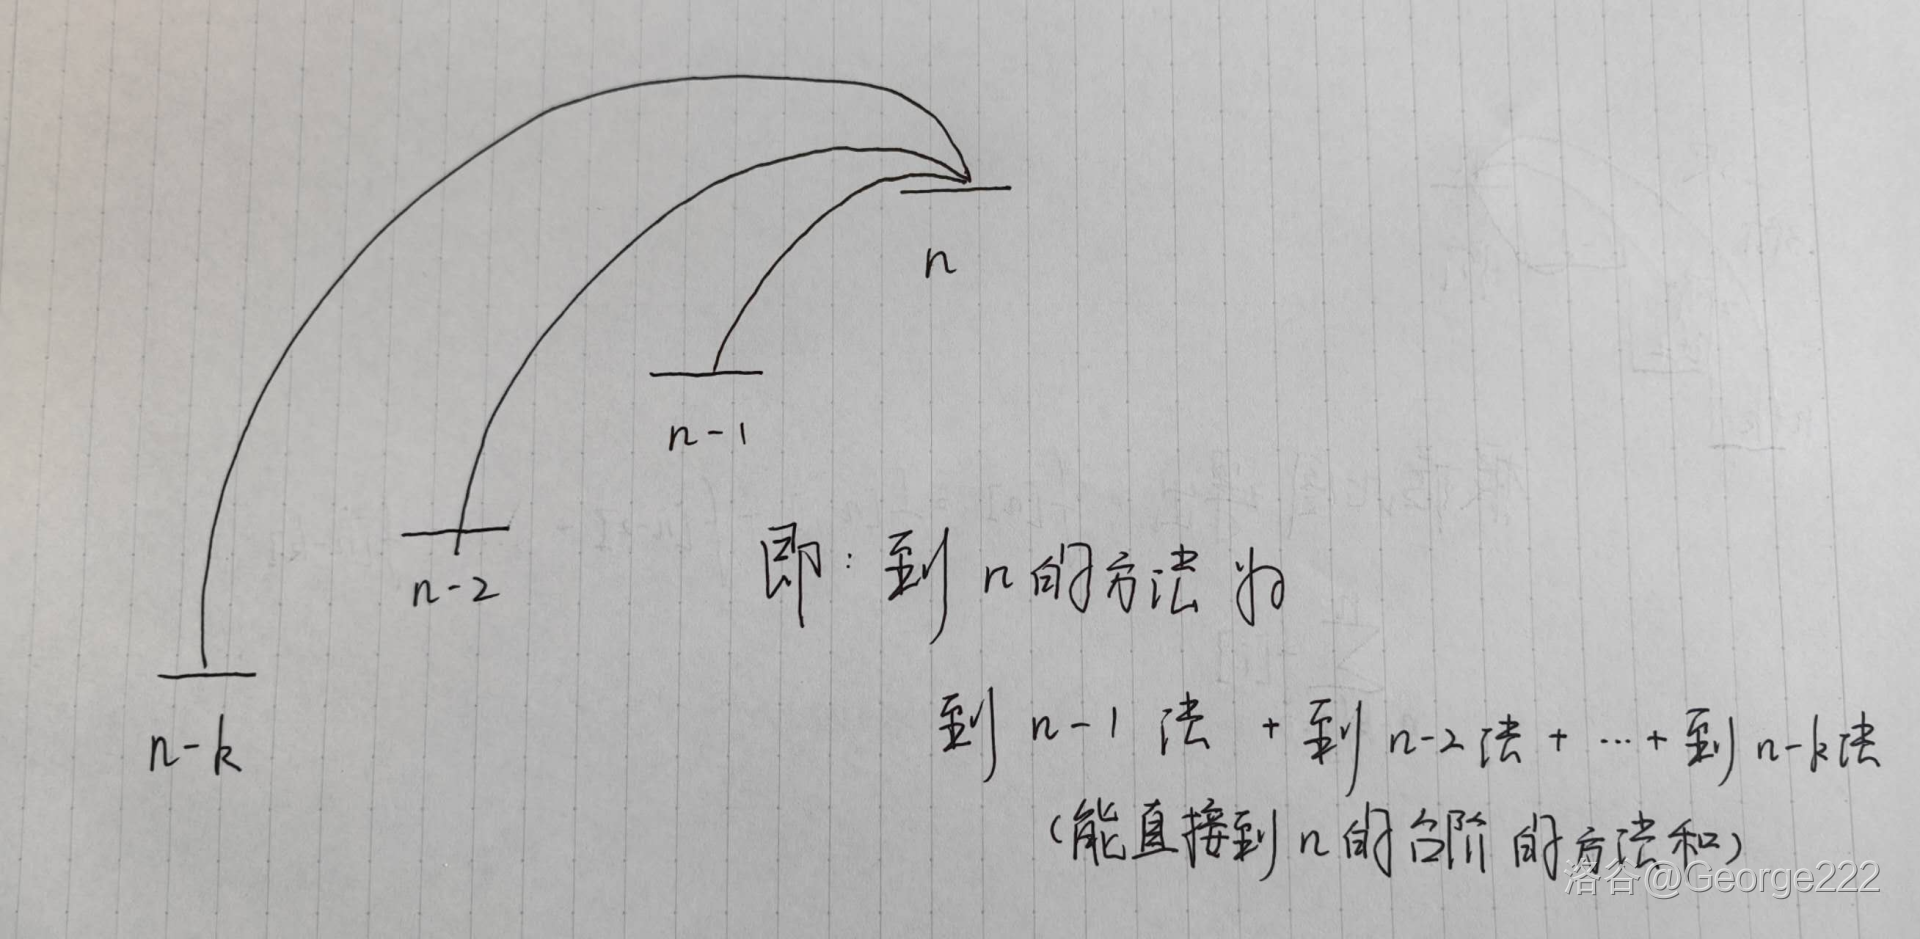 n
n-1
n-2
n-k
即：到n的方法为
到n-1法 + 到n-2法 + ... + 到n-k法
(能直接到n的台阶的方法和)
洛谷@George222